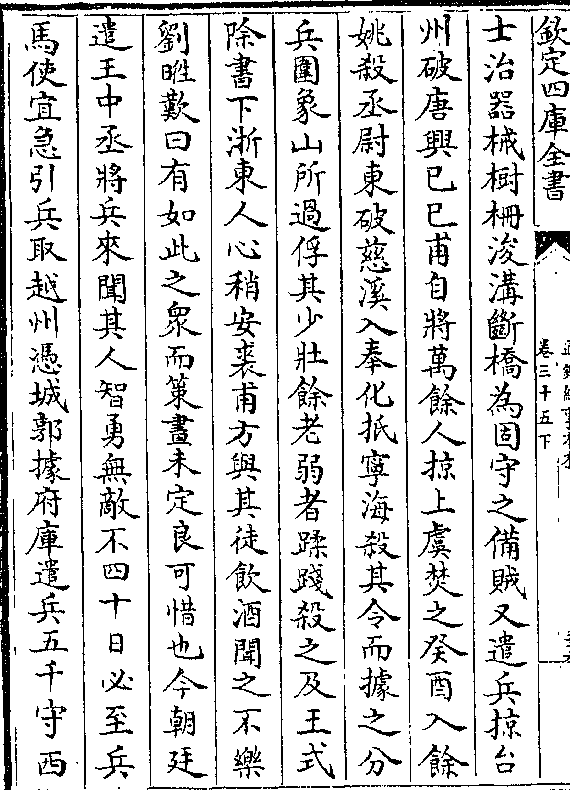 欽定四庫全書
卷三十五下
士治器械樹柵浚溝斷橋為固守之備賊又遣兵掠台
州破唐興已巳甫自將萬餘人掠上虞焚之癸酉入餘
姚殺丞尉東破慈溪入奉化抵寧海殺其令而據之分
兵圍象山所過俘其少壯餘老弱者蹂踐殺之及王式
除書下浙東人心稍安裘甫方與其徒飲酒聞之不樂
劉暀歎曰有如此之衆而策畫未定良可惜也今朝廷
遣王中丞將兵來聞其人智勇無敵不四十日必至兵
馬使宜急引兵取越州憑城郭據府庫遣兵五千守西